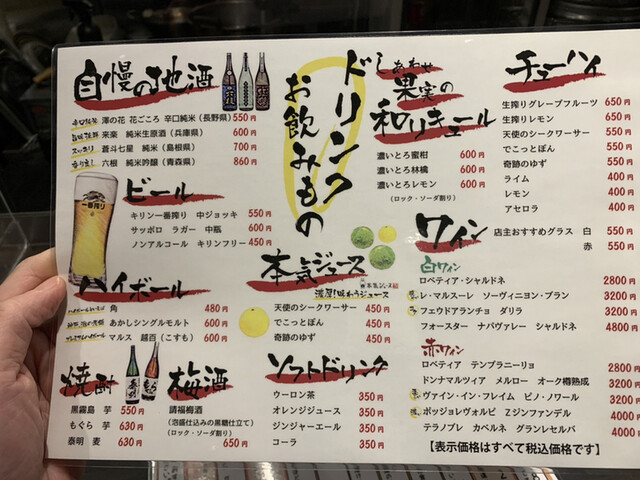 ドリンク
お飲みもの
自慢の地酒
辛口純米 澤の花 花ごころ 辛口純米(長野県) 550円
来楽 純米生原酒(兵庫県) 600円
スッキリ 蒼斗七星 純米(島根県) 700円
六根 純米吟醸(青森県) 860円
ビール
キリン一番搾り 中ジョッキ 550円
サッポロ ラガー 中瓶 600円
ノンアルコール キリンフリー 450円
一番搾り
ハイボール
角 480円
あかしシングルモルト 600円
マルス 越百(こすも) 600円
焼酎
黒霧島 芋 550円
もぐら 芋 630円
泰明 麦 630円
梅酒
請福梅酒
(泡盛仕込みの黒糖仕立て)
(ロック・ソーダ割り)
650円
しあわせ
果実の
和リキュール
濃いとろ蜜柑 600円
濃いとろ林檎 600円
濃いとろレモン 600円
(ロック・ソーダ割り)
本気ジュース
濃厚!味わうジュース
天使のシークワーサー 450円
でこっとぽん 450円
奇跡のゆず 450円
ソフトドリンク
ウーロン茶 350円
オレンジジュース 350円
ジンジャーエール 350円
コーラ 350円
チューハイ
生搾りグレープフルーツ 650円
生搾りレモン 650円
天使のシークワーサー 550円
でこっとぽん 550円
奇跡のゆず 550円
ライム 400円
レモン 400円
アセロラ 400円
ワイン
店主おすすめグラス 白 550円
赤 550円
白ワイン
ロペティア・シャルドネ 2800円
レ・マルスーレ ソーヴィニヨン・ブラン 3200円
フェウドアランチョ ダリラ 3200円
フォースター ナパヴァレー シャルドネ 4800円
赤ワイン
ロペティア テンプラニーリョ 2800円
ドンナマルツィア メルロー オーク樽熟成 3200円
ヴァイン・イン・フレイム ピノ・ノワール 3200円
ポッジョレヴォルピ Zジンファンデル 4000円
テラノブレ カベルネ グランレセルバ 4000円
【表示価格はすべて税込価格です】